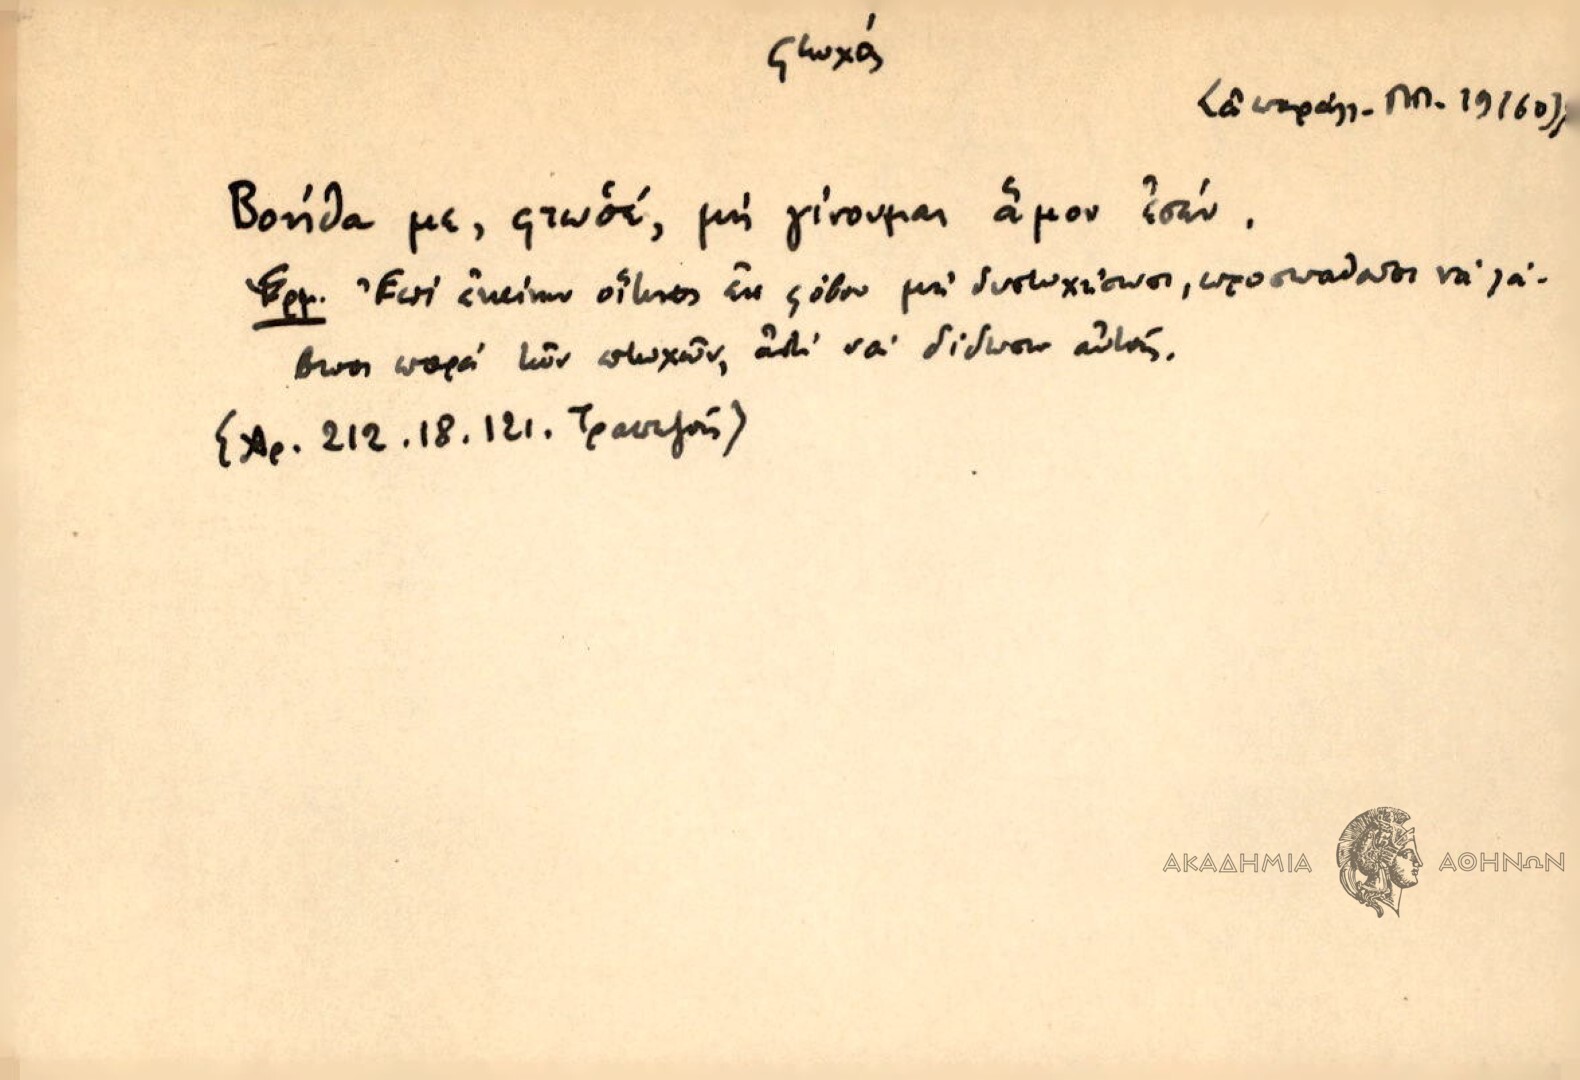 φτωχός
(ἀπαράλλ. ΠΠ. 19(60))
Βοήθα με, φτωχέ, μή γίνουμαι ἅμον ἐσέν.
Ἑρμ. Ἐπί ἐκείνων οἵτινες ἐκ φόβου μή δυστυχήσωσι, προσπαθοῦσι νά λά-
βωσι παρά τῶν πτωχῶν, ἀντί νά δίδωσιν αὐτοῖς.
(Χρ. 212.18.121. Τραπεζοῦς)
ΑΚΑΔΗΜΙΑ ΑΘΗΝΩΝ